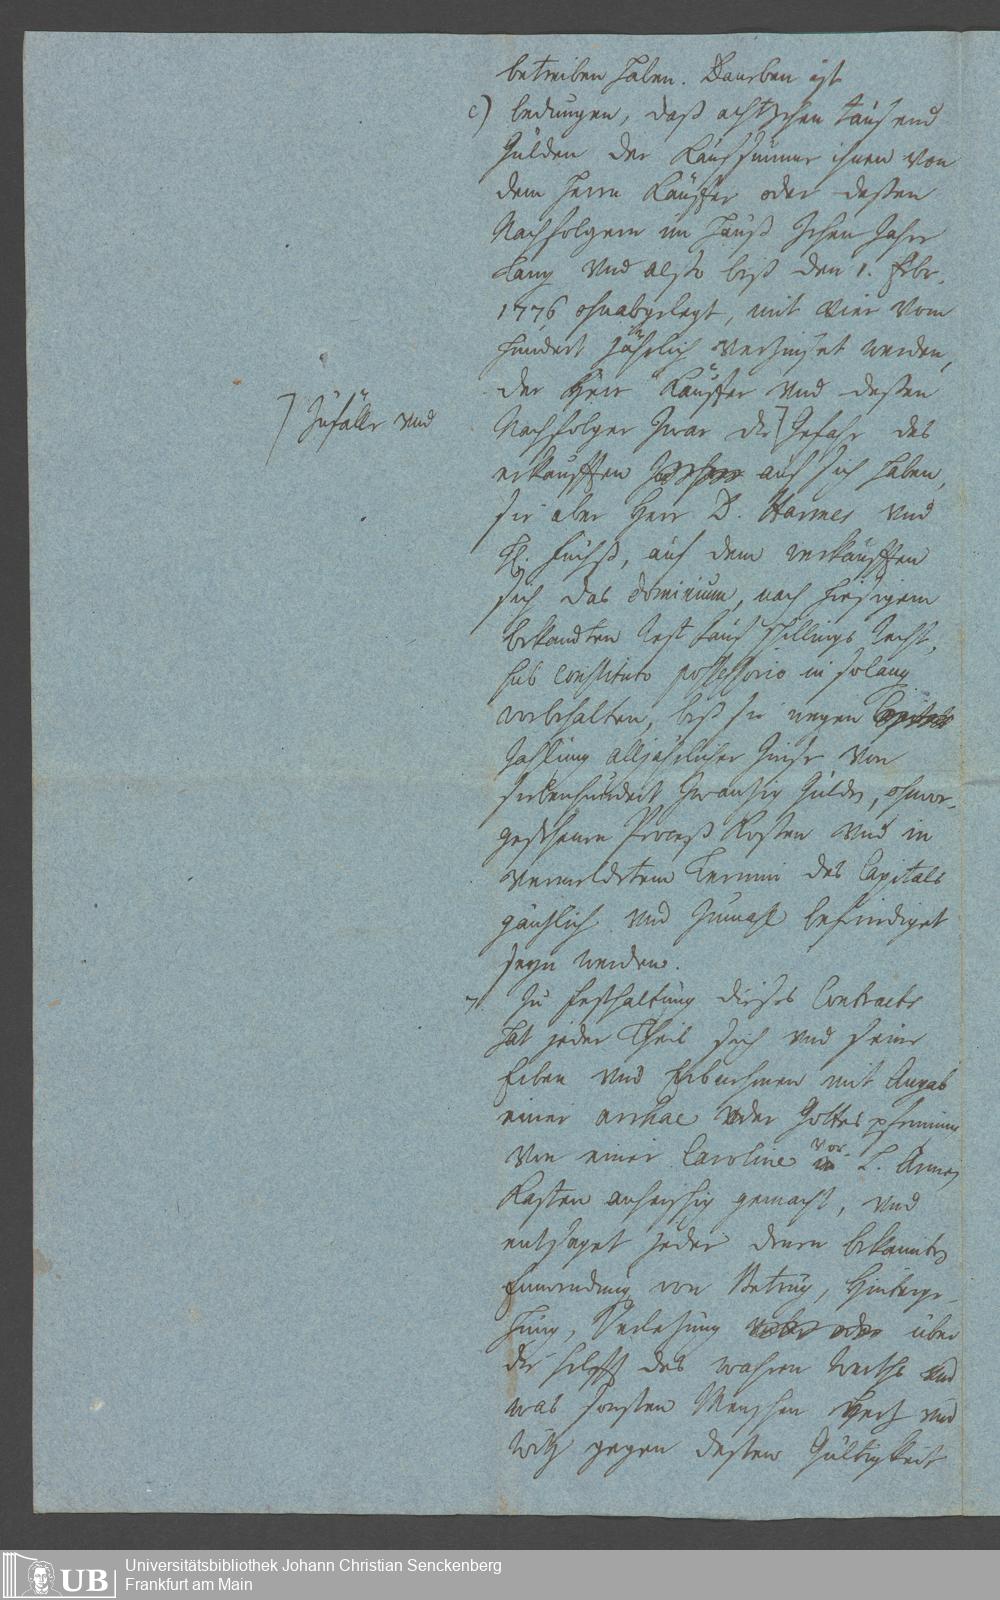 betreiben haben. Daneben ist
c) bedungen, daß achtzehen tausend
Gulden der Kaufsumme ihnen von
dem Herrn Käuffer oder deßen
Nachfolgern im Hauß Zehen Jahr
lang und also biß den 1. Febr.
1776 ohnabgelegt, mit Vier vom
hundert jährlich verzinset werden,
der Herr Käuffer und deßen
Nachfolger zwar die ⌉ Gefahr des
⌉ Zufälle und
erkaufften auf sich haben,
sie aber Herr D. Harmes und
Fr. Fuchß, auf dem verkaufften
sich das dominium, nach hiesigem
bekandten Rest Kauf Schillings Recht,
sub constituto possessorio in solang
vorbehalten, biß sie wegen
Zahlung alljährlicher Zinse von
siebenhundert zwanzig Gulden, ohnvor-
gesehenen Proceß Kosten und in
vermeldetem Termin des Capitals
gäntzlich und zumahl befriediget
seyn werden.
7. Zu Festhaltung dieses Contracts
hat jeder Theil sich und seine
Erben und Erbnehmen mit Angab
einer arrhae oder Gottes pfenning
von einer Caroline vor L. Armen
Kasten anheischig gemacht, und
entsaget jeder denen bekannten
Einwendung von Betrug, Hinterge-
hung, Verletzung über
die helfft des wahren Werths und
was sonsten Menschen Hertz und
Witz gegen deßen Gültigkeit